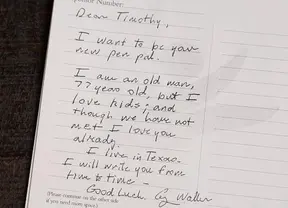 Number:
Dear Timothy,
I want to be your
new pen pal.
I am an old man,
77 years old, but I
love kids; and
though we have not
met I love you
already.
I live in Texas.
I will write you from
time to time –
Good Luck.
(Please continue on the other side
if you need more space.)